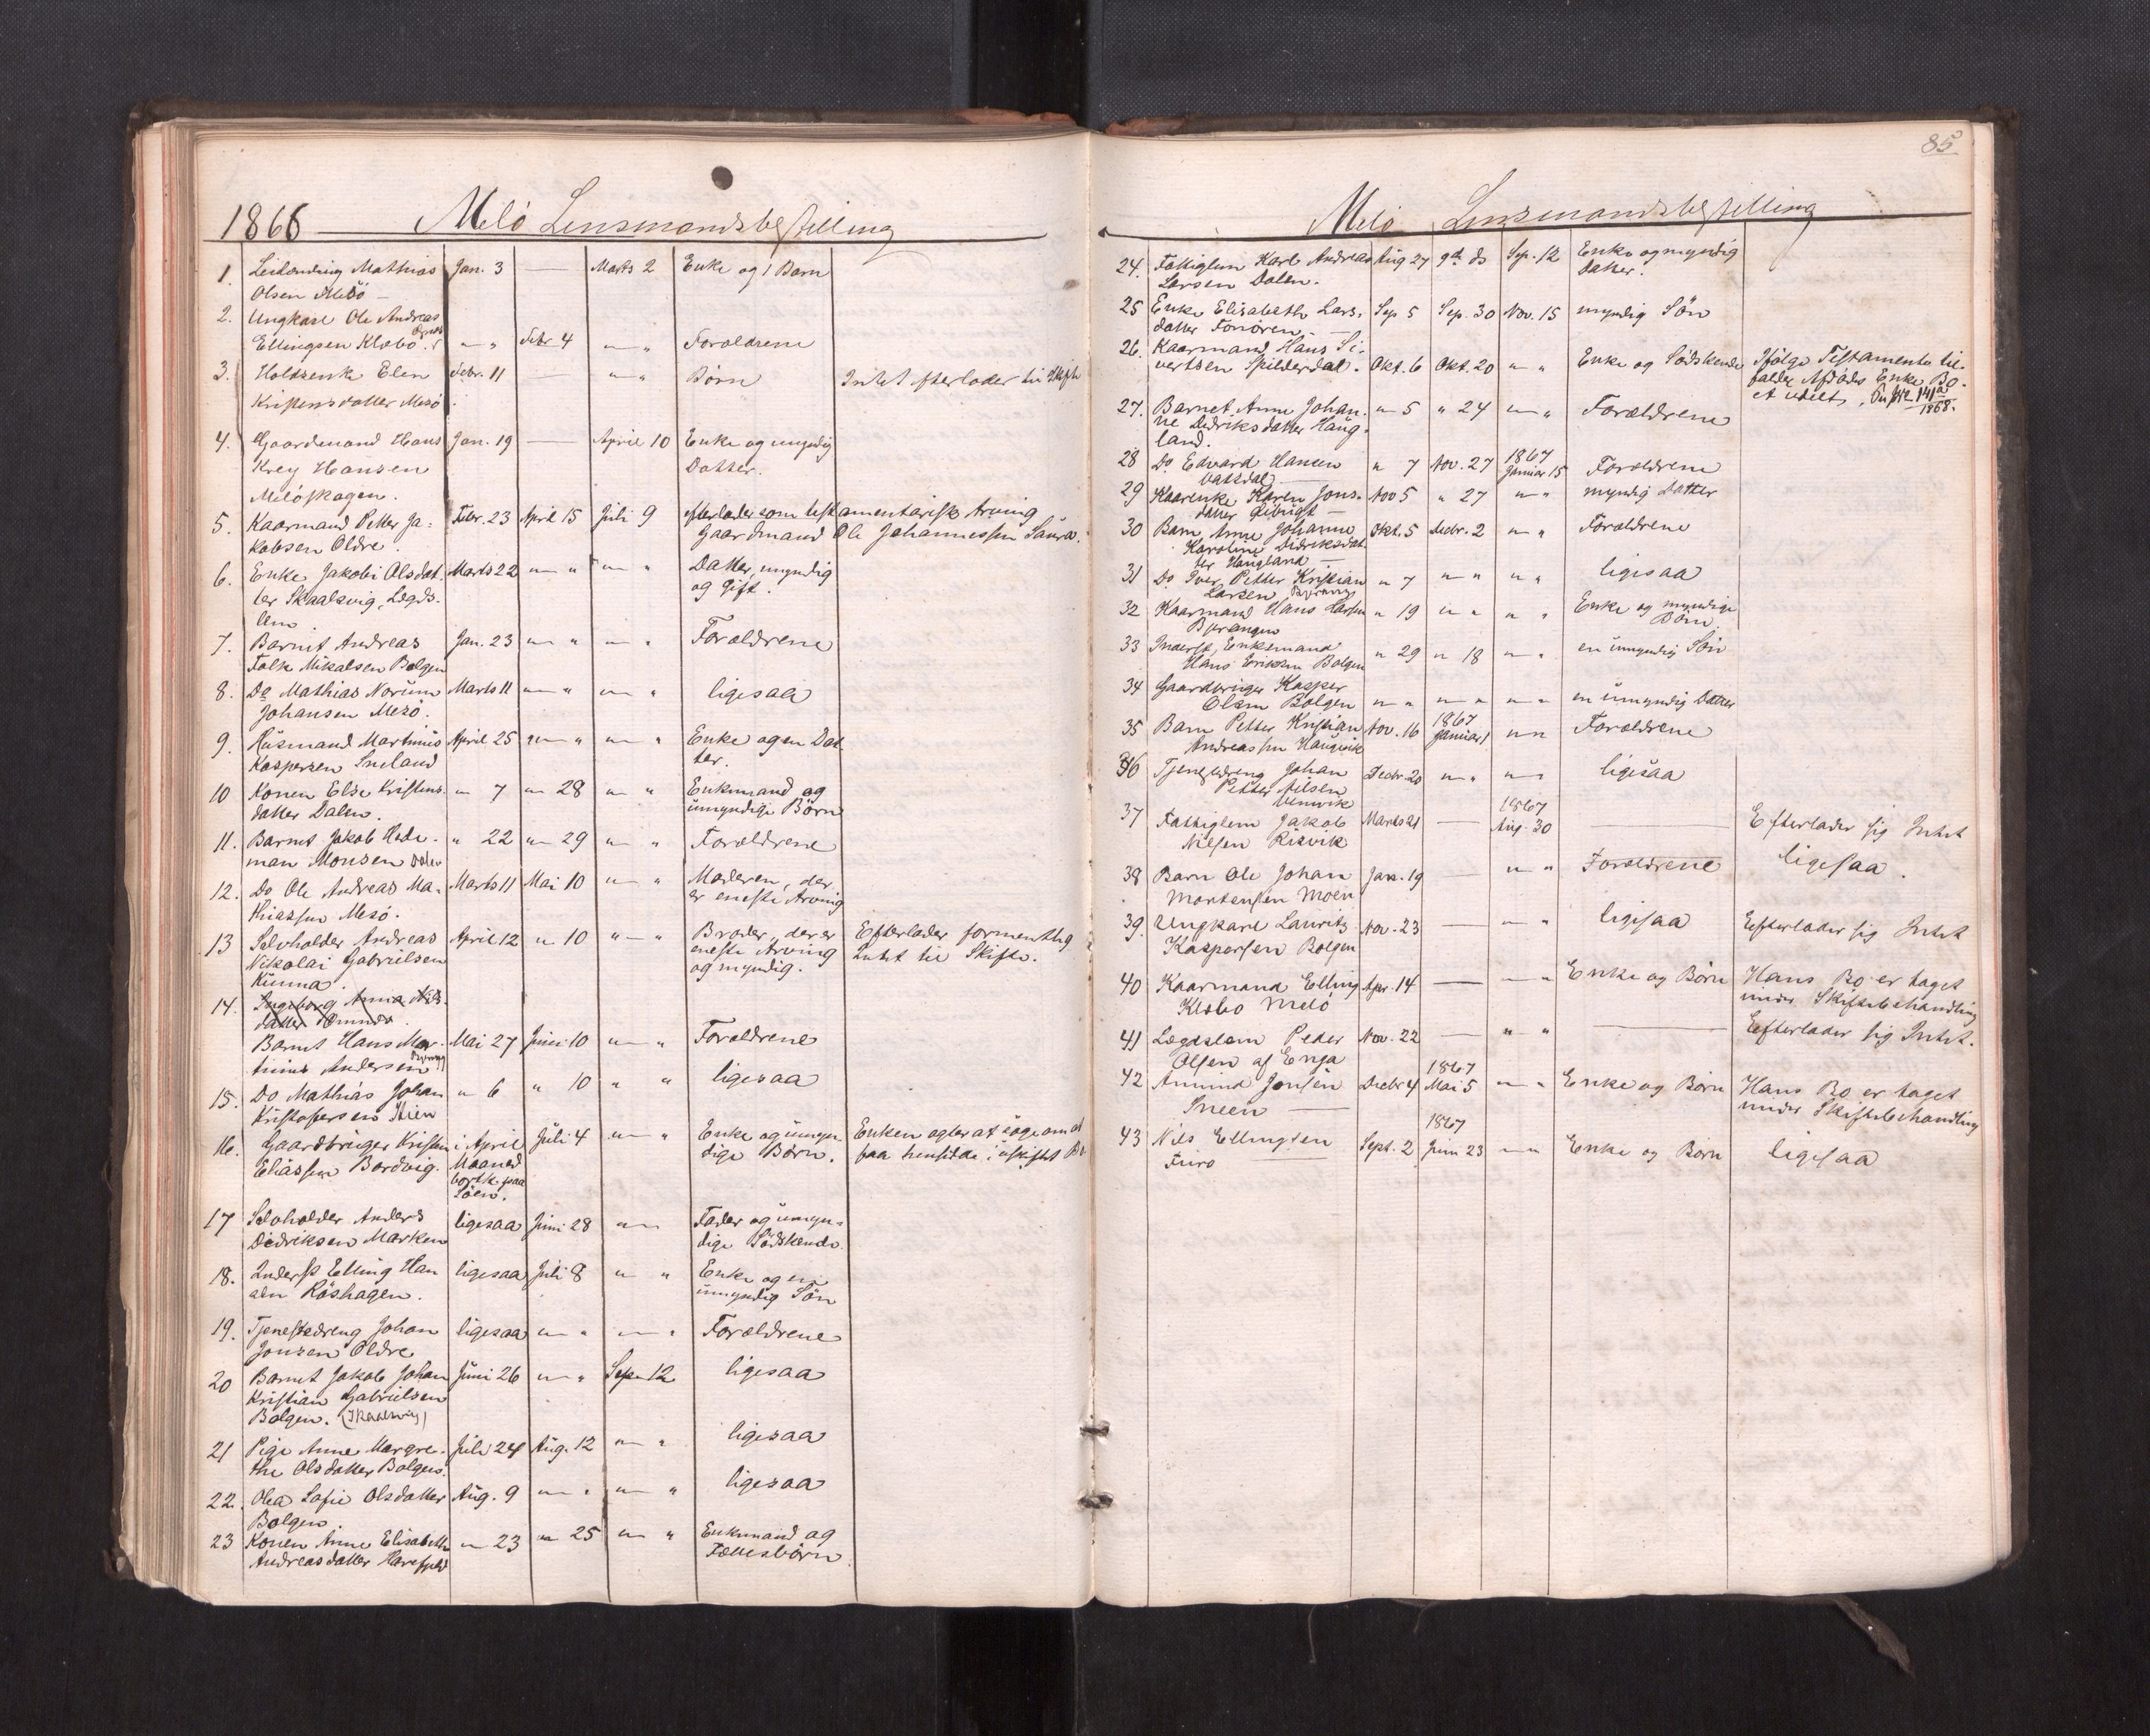 1866 Melö Lensmandsbestilling
1. Leilænding Mathias Jan. 3 — Marts 2 Enke og 1 Barn
Olsen Mesö —
2. Ungkarl Ole Andreas
Ellingsen Klæbo. " " Febr 4 " " Forældrene
3. Holdsenke Elen Febr. 11 — " " Börn Intet efterlader til Skifte
Kristensdatter Mesö.
4. Gaardmand Hans Jan. 19 — April 10 Enke og myndig
Krey Hansen Datter.
Melöskagen.
5. Kaarmand Petter Ja- Febr. 23 April 15 Juli 9 efterlader som testamentarisk Arving
kobsen Oldre. Gaardmand Ole Johannessen Saura.
6. Enke Jakobi Olsdat- Marts 22 " " " " Datter, myndig
ter Skaalsvig, Lægds- og gift.
lem.
7. Barnet Andreas Jan. 23 " " " " Forældrene
Falk Mikalsen Bolgen
8. Do Mathias Norum Marts 11 " " " " ligesaa
Johansen Mesö.
9. Husmand Martinus April 25 " " " " Enke og en Dat
Kaspersen Sneland ter.
10 Konen Else Kristens- " 7 " 28 " " Enkemand og
datter Dalen. umyndige Börn
11. Barnet Jakob Hede- " 22 " 29 " " Forældrene
man Monsen Dalen
12. Do Ole Andreas Ma- Marts 11 Mai 10 " " Moderen, der
thiassen Mesö. er eneste Arving
13 Selvholder Andreas April 12 " 10 " " Broder, der er Efterlader formentlig
Nikolai Gabrielsen eneste Arving Intet til Skifte.
Kunna. og myndig.
14. Ingeborg Anna Nils-
datter Ornnes.
Barnet Hans Mar- Mai 27 Juni 10 " " Forældrene
tinus Andersen
15. Do Mathias Johan " 6 " 10 " " ligesaa
Kristofersen Stien
16. Gaardbruger Kristen i April Juli 4 " " Enke og umyn- Enken agter at söge om at
Eliassen Bordvig. Maaned dige Börn. faa hensidde i uskiftet Bo
bortk. paa
Söen.
17 Selvholder Anders ligesaa Juni 28 " " Fader og umyn-
Didriksen Marken dige Södskende.
18. Inderst Elling Han ligesaa Juli 8 " " Enke og en
sen Röshagen. umyndig Sön
19. Tjenestedreng Johan ligesaa " " " " Forældrene
Jonsen Oldre
20 Barnet Jakob Johan Juni 26 " " Sep. 12 ligesaa
Kristian Gabrielsen
Bolgen. (Skaalsvig)
21 Pige Anne Margre- Juli 24 Aug. 12 " " ligesaa
the Olsdatter Bolgen.
22. Olea Sofie Olsdatter Aug. 9 " " " " ligesaa
Bolgen.
23 Konen Anne Elisabeth " 23 " 25 " " Enkemand og
Andreasdatter Harefjeld Fællesbörn.
85
Melö Lensmandsbestilling
24. Fattiglem Karl Andreas Aug 27 9de ds Sep. 12 Enke og myndig
Larsen Dalen. Datter.
25 Enke Elisabeth Lars- Sep 5 Sep. 30 Nov. 15 myndig Sön
datter Fonören. —
26. Kaarmand Hans Si- Okt. 6 Okt. 20 " " Enke og Södskende Ifölge Testamente til-
vertsen Spilderdal. falder Afdödes Enke Bo-
et udelt,
1868.
27. Barnet Anne Johan- " 5 " 24 " " Forældrene
ne Dedriksdatter Haug-
land.
28 Do Edvard Hansen " 7 Nov. 27 1867 Januar 15 Forældrene
Vatsdal —
29 Kaarenke Karen Jons- Nov 5 " 27 " " myndig Datter
datter Gibrigt —
30 Barn Anne Johanne Okt. 5 Decbr. 2 " " Forældrene
Karoline Didriksdat-
ter Haugland —
31 Do Iver Petter Kristian " 7 " " " " ligesaa
Larsen Bjerang
32 Kaarmand Hans Larsen " 19 " " " " Enke og myndige
Bjerangen Börn.
33 Inderst, Enkemand " 29 " 18 " " en umyndig Sön
Hans Eriksen Bolgen
34 Gaardbruger Kasper
Olsen Bolgen " " " " " " en umyndig Datter
35 Barn Petter Kristian Nov. 16 1867 Januar 1 " " Forældrene
Andreassen Haugvik
36 Tjenestdreng Johan Decbr. 20 " " " " ligesaa
Petter Nilsen
37 Fattiglem Jakob Marts 21 — 1867 Aug. 30 — Efterlader sig Intet
Nilsen Risvik
38 Barn Ole Johan Jan. 19 — " " Forældrene ligesaa.
Mortensen Moen
39. Ungkarl Laurits Nov. 23 — " " ligesaa Efterlader sig Intet
Kaspersen Bolgen
40 Kaarmand Elling Apr. 14 — " " Enke og Börn Hans Bo er taget
Klæbo Melö under Skiftebehandling
41 Lægdslem Peder Nov. 22 — " " — Efterlader sig Intet.
Olsen af Enga
42 Amund Jensen Decbr 4 1867 Mai 5 " " Enke og Börn Hans Bo er taget
Sneen — under Skiftebehandling
43 Nils Ellingsen Sept. 2 1867 Juni 23 " " Enke og Börn ligesaa
Furo —